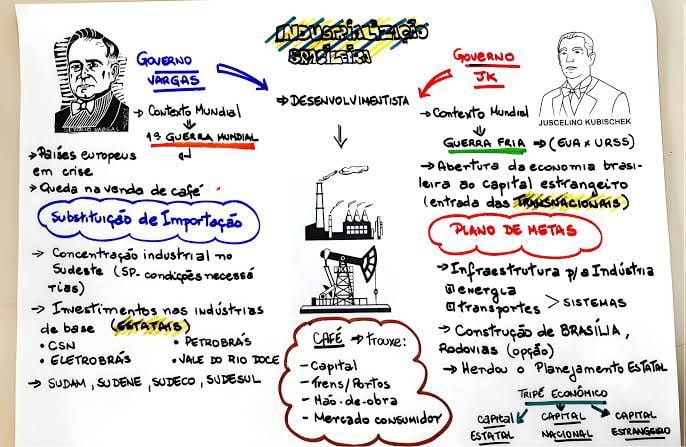 INDUSTRIALIZAÇÃO
BRASILEIRA
GOVERNO
VARGAS
→ CONTEXTO MUNDIAL
1ª GUERRA MUNDIAL
→ PAÍSES EUROPEUS
EM CRISE
→ QUEDA NA VENDA DE CAFÉ
SUBSTITUIÇÃO DE IMPORTAÇÃO
→ CONCENTRAÇÃO INDUSTRIAL NO
SUDESTE (SP- CONDIÇÕES NECESSÁ
RIAS)
→ INVESTIMENTOS NAS INDÚSTRIAS
DE BASE (ESTATAIS)
• CSN • PETROBRÁS
• ELETROBRÁS • VALE DO RIO DOCE
→ SUDAM, SUDENE, SUDECO, SUDESUL
→ DESENVOLVIMENTISTA
CAFÉ → TROUXE:
- CAPITAL
- TRENS/PORTOS
- MÃO-DE-OBRA
- MERCADO CONSUMIDOR
GOVERNO
JK
JUSCELINO KUBISCHEK
→ CONTEXTO MUNDIAL
GUERRA FRIA → (EUA X URSS)
→ ABERTURA DA ECONOMIA BRASI-
LEIRA AO CAPITAL ESTRANGEIRO
(ENTRADA DAS TRANSNACIONAIS)
PLANO DE METAS
→ INFRAESTRUTURA P/A INDÚSTRIA
ENERGIA
TRANSPORTES > SISTEMAS
→ CONSTRUÇÃO DE BRASÍLIA,
RODOVIAS (OPÇÃO)
→ HERDOU O PLANEJAMENTO ESTATAL
TRIPÉ ECONÔMICO
CAPITAL
ESTATAL
CAPITAL
NACIONAL
CAPITAL
ESTRANGEIRO